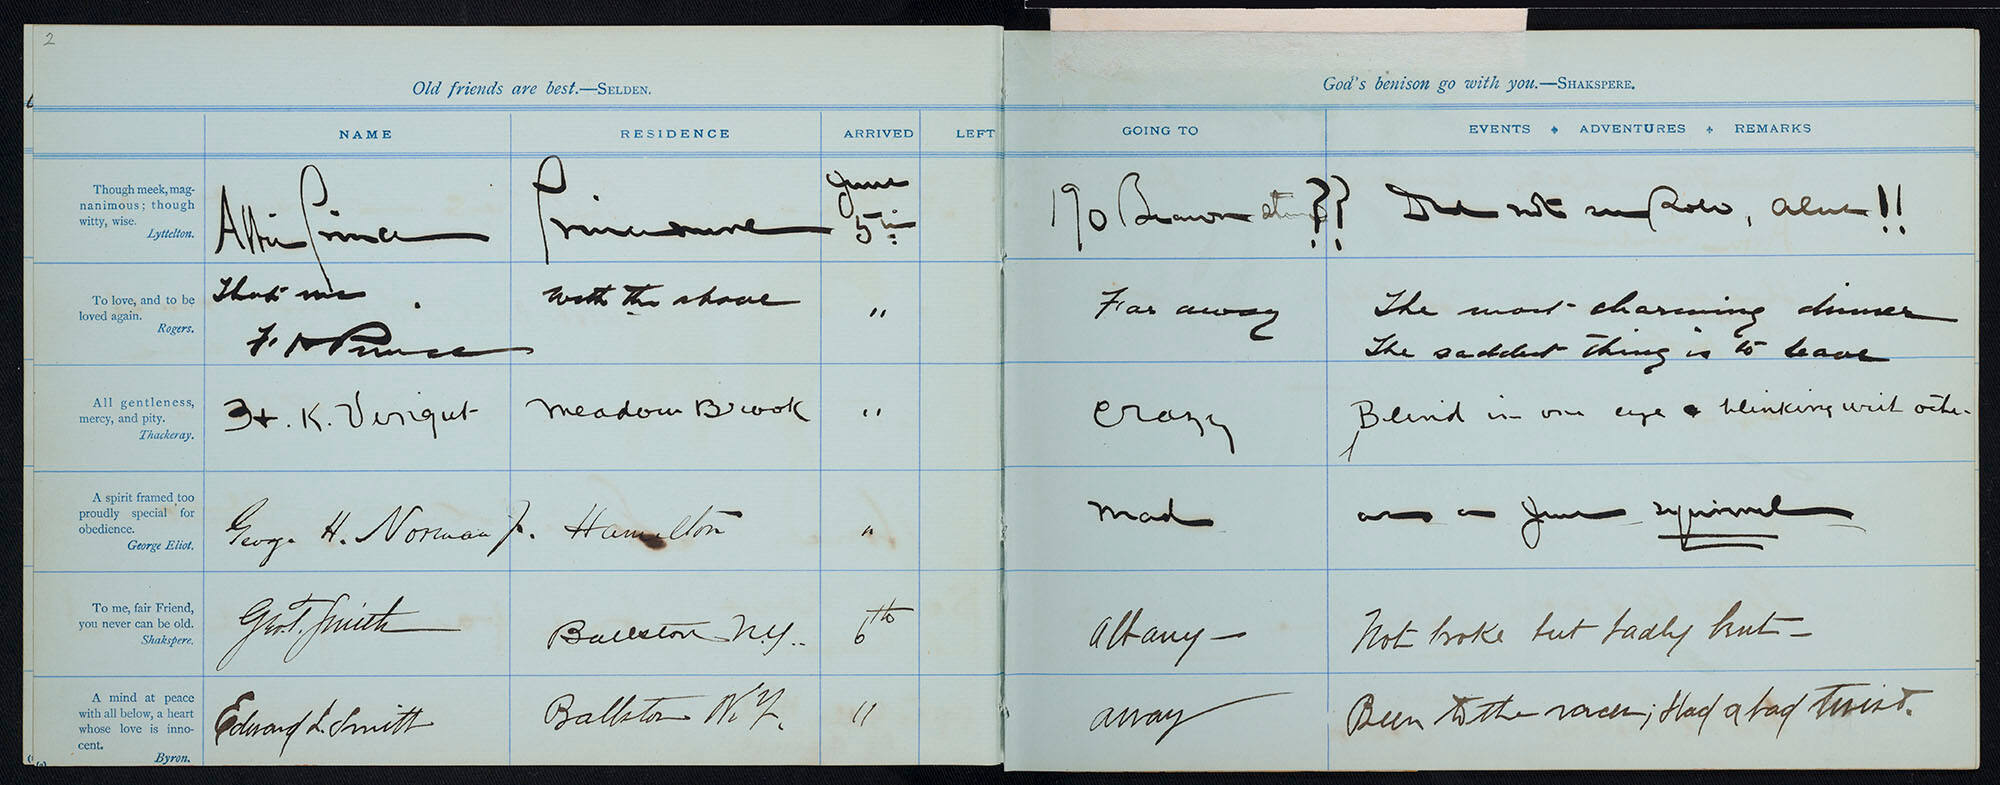 2
Old friends are best.—SELDEN.
God's benison go with you.—SHAKSPERE.
NAME RESIDENCE ARRIVED LEFT GOING TO EVENTS ADVENTURES REMARKS
Though meek, mag-
nanimous; though
witty, wise.
Lyttelton.
June
5th 190 ?? Did not , !!
To love, and to be
loved again.
Rogers.
That's me With the above " Far away The most charming dinner
F. H. Prince The saddest thing is to leave
All gentleness,
mercy, and pity.
Thackeray.
K. Meadow Brook " Crazy Blind in one eye & blinking with
A spirit framed too
proudly special for
obedience.
George Eliot.
George H. Norman Jr. Hamilton " Mad as a June squirrel
To me, fair Friend,
you never can be old.
Shakspere.
Geo. T. Smith Ballston N.Y. 6th Albany — Not broke but badly bent —
A mind at peace
with all below, a heart
whose love is inno-
cent.
Byron.
Edward L. Smith Ballston N.Y. " away Been to the races; Had a bad twist.